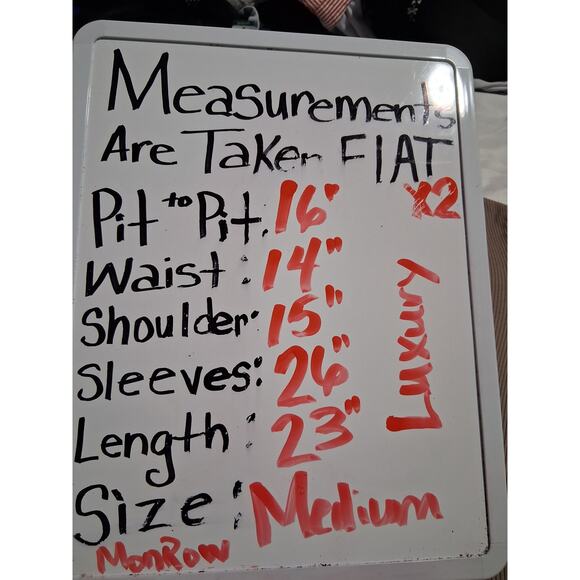 Measurements
Are Taken FlAT
x2
Pit to Pit: 16"
Waist: 14"
Shoulder: 15"
Sleeves: 26"
Length: 23"
Luxury
Size: Medium
MonRow